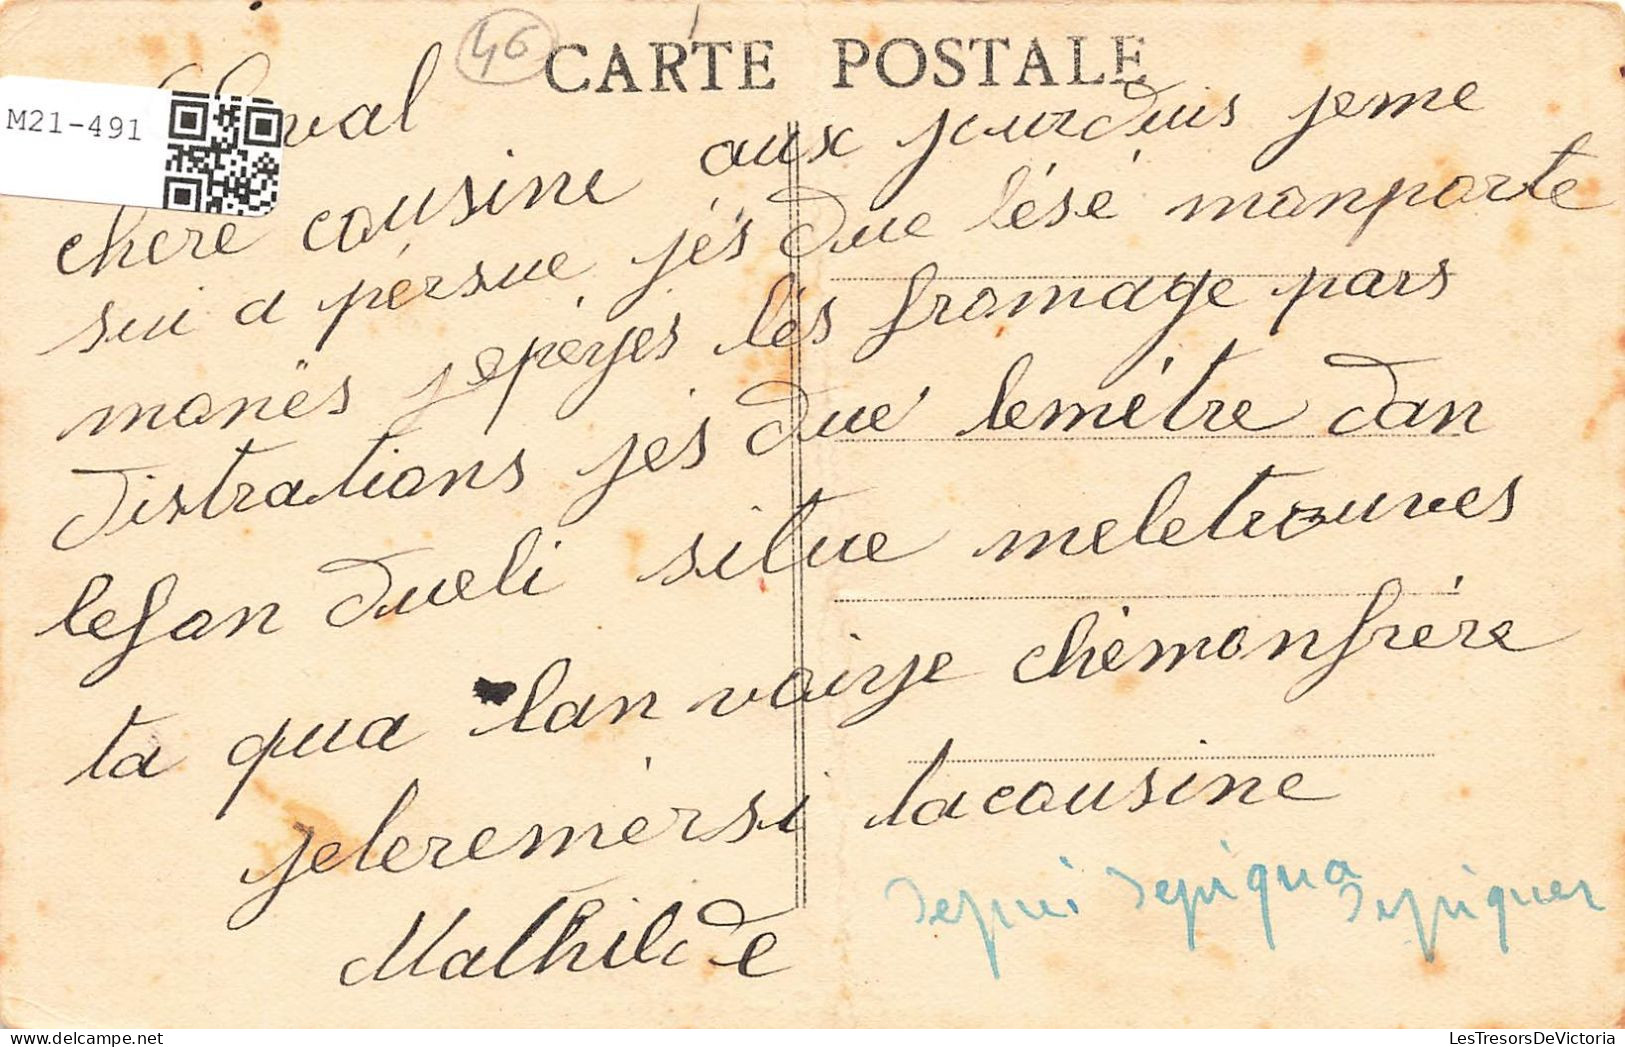 46
CARTE POSTALE
M21-491
chere cousine aux jourduis jeme
sui a pérsue jés due lésé monporte
monës jepéyes lés fromage pars
distrations jes dué lemétre dan
lefon dueli situe meletrouves
ta qua lan voirje chémonfrére
jeleremérsi lacousine
Mathilde
depui depiqua depiquer
LesTresorsDeVictoria